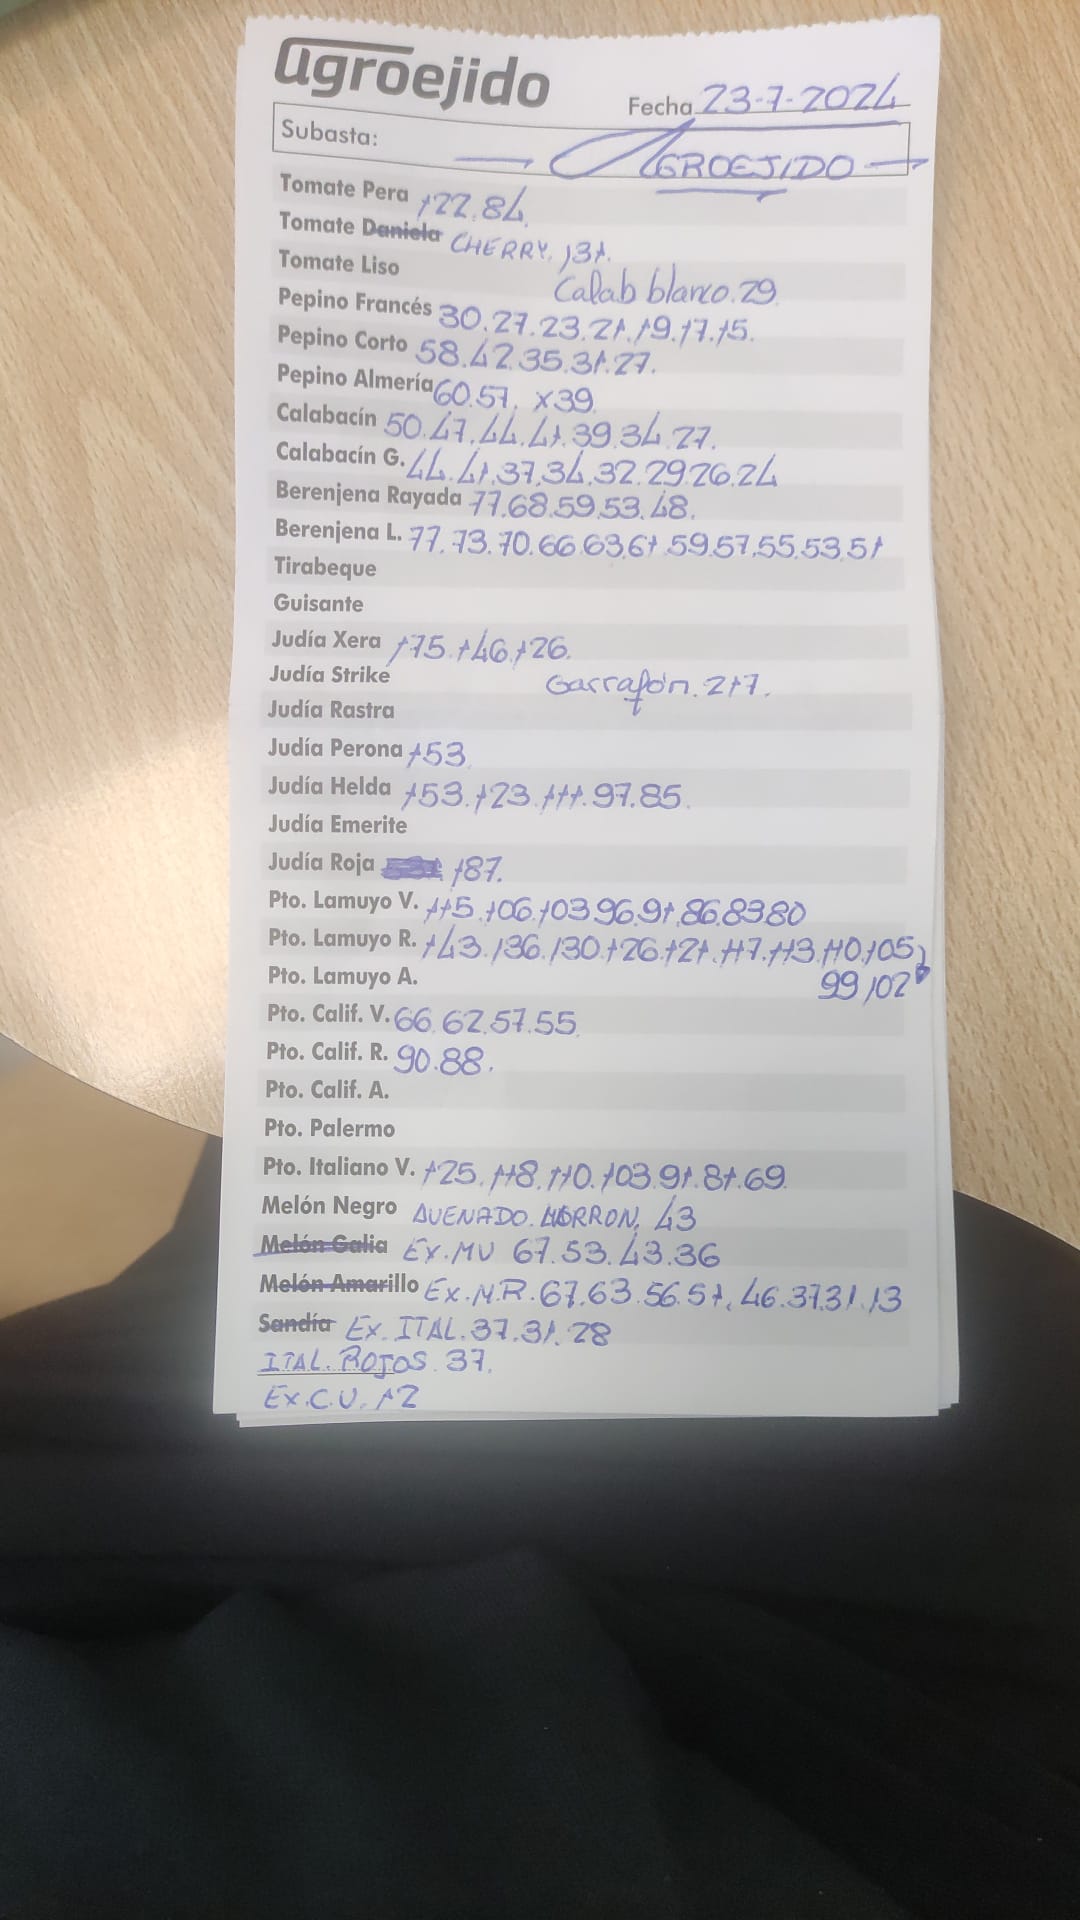 agroejido
Fecha 23-7-2024
Subasta: AGROEJIDO
Tomate Pera 122.84.
Tomate Daniela CHERRY. 131.
Tomate Liso
Calab blanco. 29.
Pepino Francés 30.27.23.21.19.17.15.
Pepino Corto 58.42.35.31.27.
Pepino Almería 60.57. x39.
Calabacín 50.47.44.41.39.34.27.
Calabacín G. 44.41.37.34.32.29.26.24
Berenjena Rayada 77.68.59.53.48.
Berenjena L. 77.73.70.66.63.61.59.57.55.53.51
Tirabeque
Guisante
Judía Xera 175.146.126.
Judía Strike Garrafón. 217.
Judía Rastra
Judía Perona 153.
Judía Helda 153.123.111.97.85.
Judía Emerite
Judía Roja 187.
Pto. Lamuyo V. 115.106.103.96.91.86.83.80
Pto. Lamuyo R. 143.136.130.126.121.117.113.110.105
Pto. Lamuyo A. 99.102
Pto. Calif. V. 66.62.57.55.
Pto. Calif. R. 90.88.
Pto. Calif. A.
Pto. Palermo
Pto. Italiano V. 125.118.110.103.91.81.69.
Melón Negro AVENADO. MORRON. 43
Melón Galia EX.MV 67.53.43.36
Melón Amarillo EX.M.R. 67.63.56.51.46.37.31.13
Sandía EX. ITAL. 37.31.28
ITAL. ROJOS. 37.
EX.C.V. 12